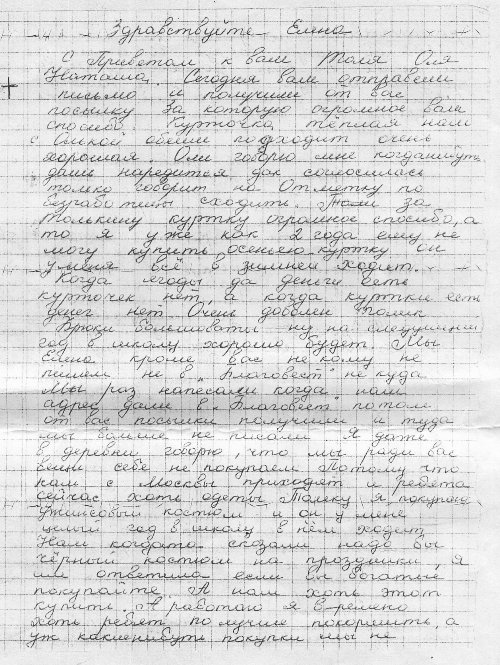 Здравствуйте Елена
С Приветом к вам Толя Оля
Наташа. Сегодня вам отправели
письмо и получили от вас
посылку За которую огромное вам
спосибо. Курточка тёплая нам
с Олькой обеим подходит очень
хорошая. Оли говорю мне когданибуть
дашь наредится дак согласилась
только говорит на Отметку по
безработицы сходить. Нам за
Толькину куртку огромное спосибо, а
то я уже как 2 года ему не
могу купить осенью куртку он
у меня всё в зимней ходит.
Когда ягоды да деньги есть
курточек нет, а когда куртки есть
денег нет. Очень доволен толик
Брюки большоваты ну на следущий
год в школу хорошо будет. Мы
Елена кроме вас не кому не
пишем не в „Благовест" не куда
Мы раз написали когда нам
адрес дали в „Благовест" потом
от вас посылки получили и туда
мы больше не писали Я даже
в деревни говорю, что мы ради вас
вещи себе не покупаем Потому что
нам с Москвы приходят и ребята
сейчас хоть одеты Толеку я покупаю
джинсовый костюм и он у меня
целый год в школу в нём ходит
Нам когдато сказали надо бы
чёрный костюм на праздники, я
им ответила если вы богатые
покупайте. А нам хоть этот
купить. А работаю я время
хоть ребят получше покормить, а
уж какиенибуть покупки мы не